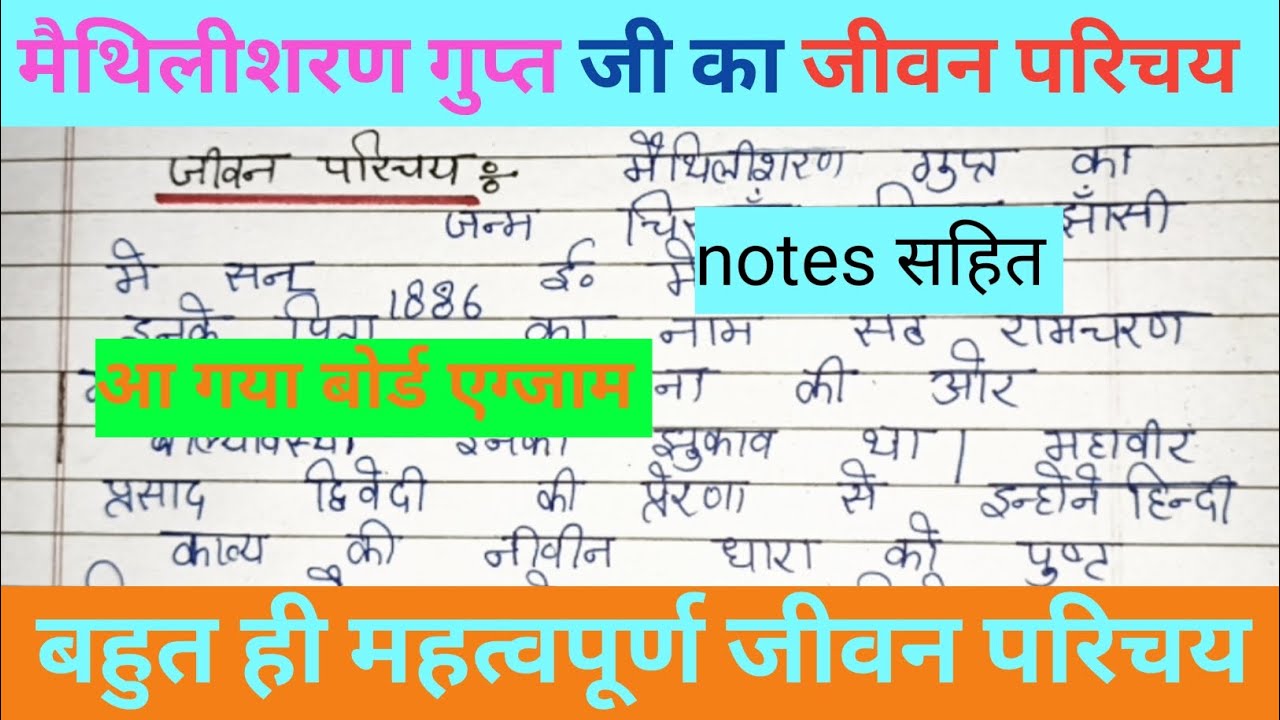 मैथिलीशरण गुप्त जी का जीवन परिचय
जीवन परिचय : मैथिलीशरण गुप्त का
जन्म झाँसी
notes सहित
मे सन् 1886 ई० मे
इनके पिता का नाम सेठ रामचरण
आ गया बोर्ड एग्जाम
की ओर
बाल्यावस्था इनका झुकाव था। महावीर
प्रसाद द्विवेदी की प्रेरणा से इन्होने हिन्दी
काव्य की नवीन धारा को पुष्ट
बहुत ही महत्वपूर्ण जीवन परिचय